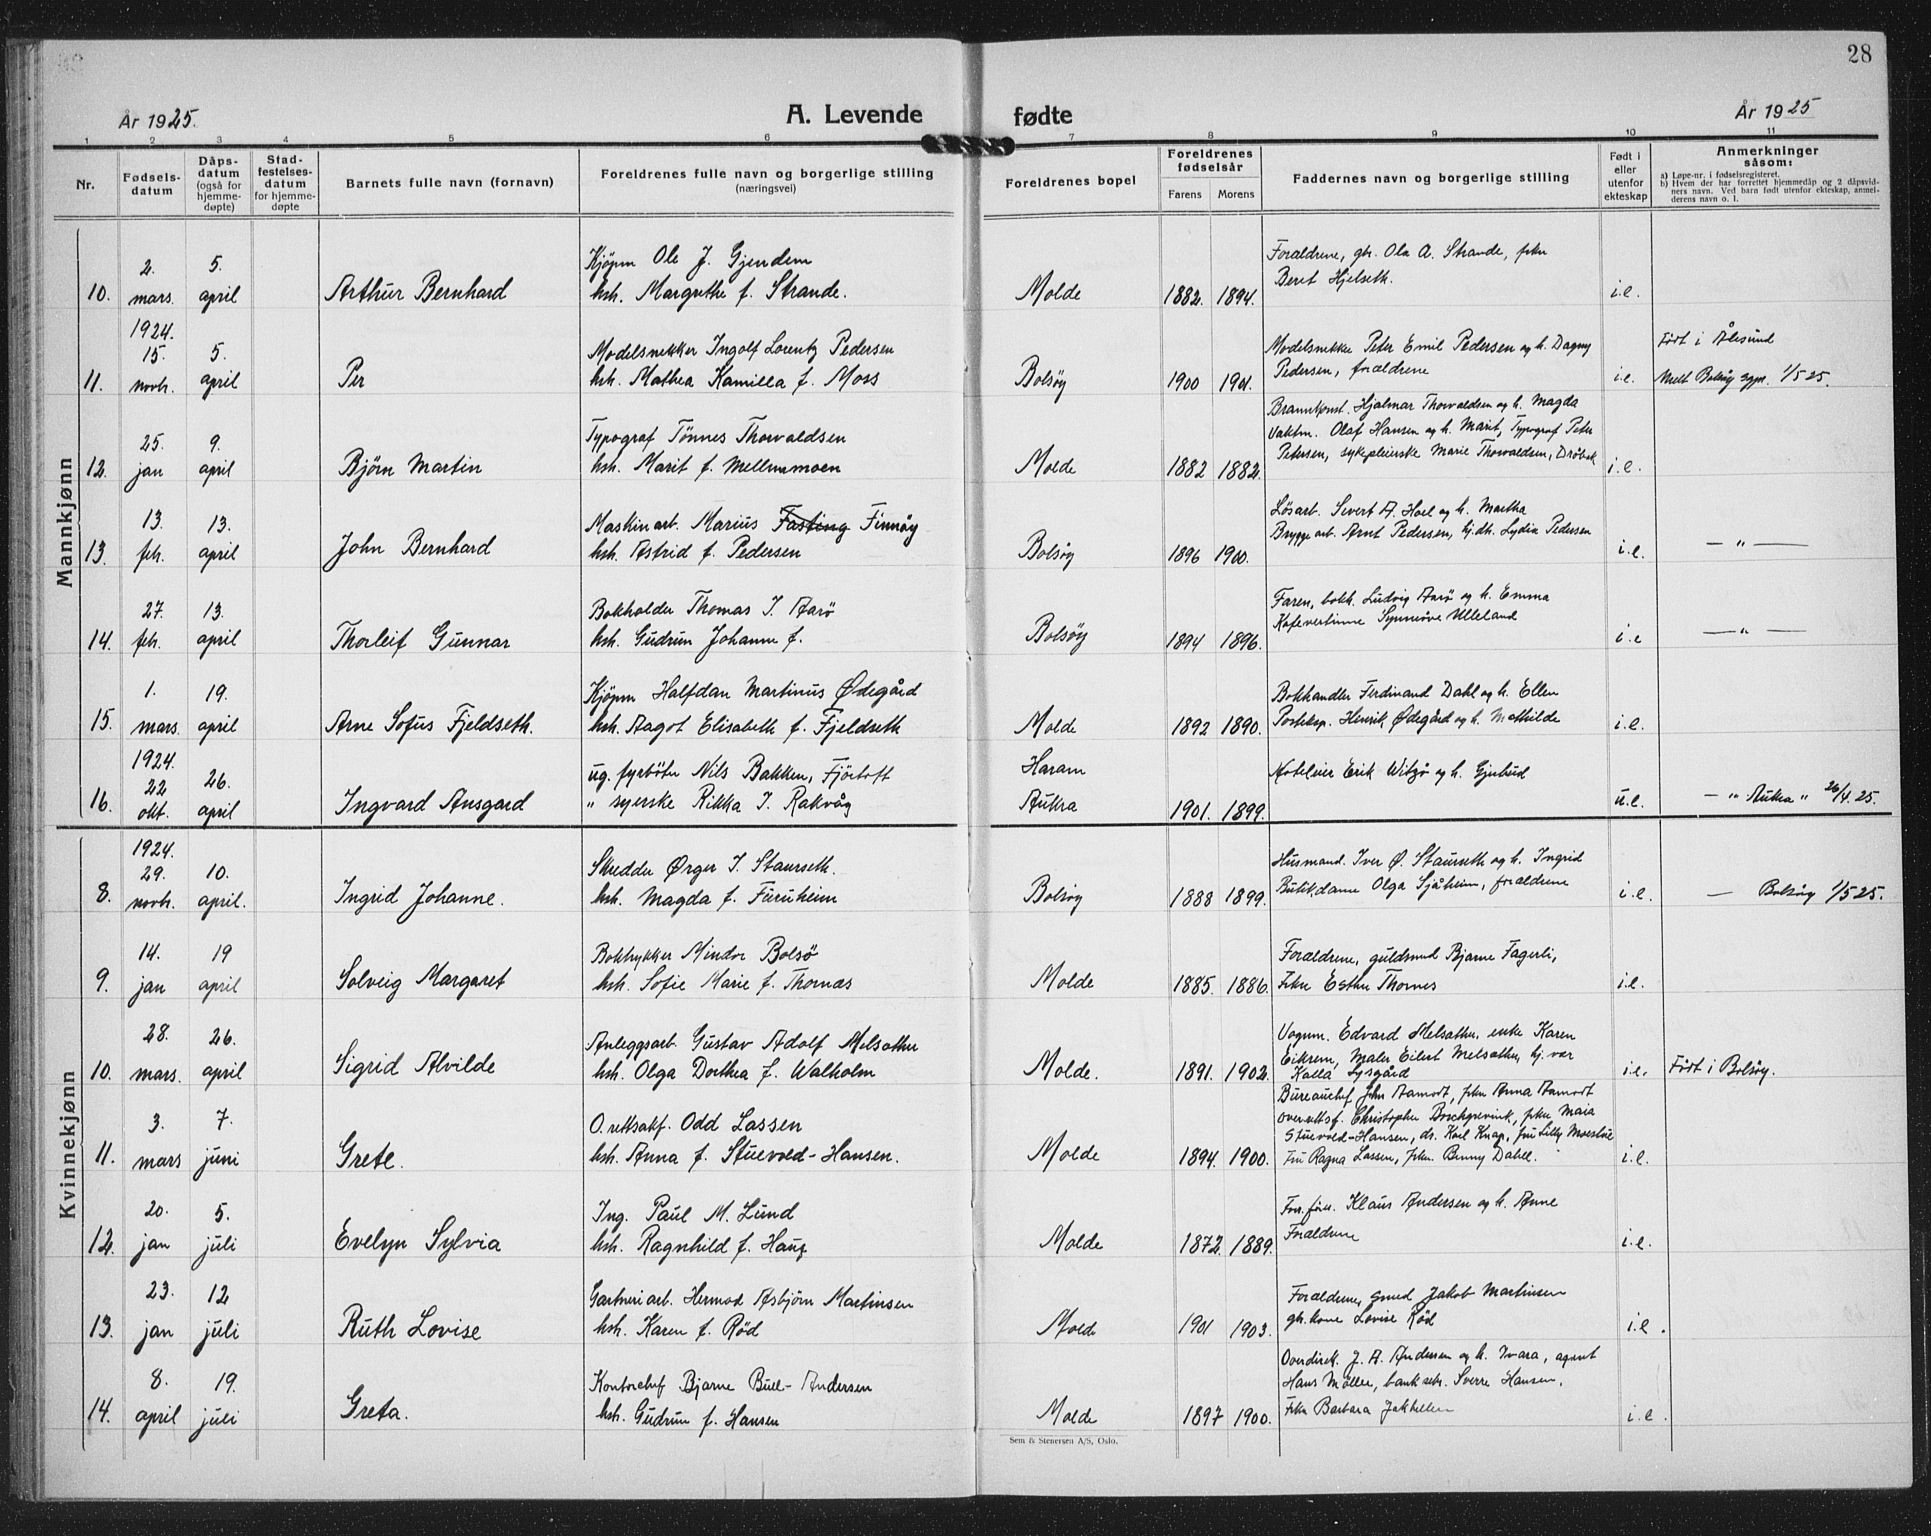 28
År 1925.
A. Levende fødte
År 1925
1 2 3 4 5 6 7 8 9 10 11
Nr.
Fødsels-
datum
Dåps-
datum
(også for
hjemme-
døpte)
Stad-
festelses-
datum
for hjemme-
døpte
Barnets fulle navn (fornavn)
Foreldrenes fulle navn og borgerlige stilling
(næringsvei)
Foreldrenes bopel
Foreldrenes
fødselsår
Farens Morens
Faddernes navn og borgerlige stilling
Født i
eller
utenfor
ekteskap
Anmerkninger
såsom:
a) Løpe-nr. i fødselsregisteret.
b) Hvem der har forrettet hjemmedåp og 2 dåpsvid-
ners navn. Ved barn født utenfor ekteskap, anmel-
derens navn o. l.
Mannkjønn
Kjøpm Ole J. Gjendem
Forældrene, gbr. Ola A. Strande, frkn
2. 5.
Beret Hjelseth.
10. mars. april Arthur Bernhard hst. Margrethe f. Strande. Molde 1882. 1894. i.e.
1924.
15. 5. Modelsnekker Ingolf Lorentz Pedersen
Modelsnekke Peter Emil Pedersen og h. Dagny
Født i Ålesund
11. novb. april Per hst. Mathea Kamilla f. Moss Bolsøy 1900 1901. Pedersen, forældrene i.e. Melt Bolsøy sgpr. 1/5 25.
Brannkonst. Hjalmar Thorvaldsen og h. Magda
25. 9. Typograf Tønnes Thorvaldsen
Vaktm. Olaf Hansen og h. Marit, Typograf Peter
12. jan april Bjørn Martin hst. Marit f. Mellemmoen Molde 1882 1882. Petersen, sykepleierske Marie Thorvaldsen, Drøbak i.e.
13. 13. Maskinarb. Marius Fasting Finnøy
Løsarb. Sivert A. Hoel og h. Martha
13. feb. april John Bernhard hst. Astrid f. Pedersen Bolsøy 1896 1900. Bryggearb. Arnt Pedersen, hj.dt. Lydia Pedersen i.e. — " —
27. 13. Bokholder Thomas J. Aarø
Faren, bokh. Ludvig Aarø og h. Emma
Kafevertinne Synnøve Ulleland
14. feb. april Thorleif Gunnar hst. Gudrun Johanne f. Bolsøy 1894 1896. i.e — " —
1. 19. Kjøpm Halfdan Martinus Ødegård
Bokhandler Ferdinand Dahl og h. Ellen
15. mars. april Arne Sofus Fjeldseth. hst. Aagot Elisabeth f. Fjeldseth Molde 1892 1890. Posteksp. Henrik Ødegård og h. Mathilde i.e.
1924.
22 26. ug. fyrbøter Nils Bakken, Fjörtoft Haram
Hoteleier Erik Witzø og h. Gjertrud
16. okt. april Ingvard Ansgard " syerske Rikka J. Rakvåg Aukra 1901. 1899. u.e. — " Aukra " 26/4. 25.
Kvinnekjønn
1924.
29. 10. Skredder Ørger I. Staurseth.
Husmand. Iver Ø. Staurseth og h. Ingrid
8. novb. april. Ingrid Johanne. hst. Magda f. Furuheim Bolsøy 1888 1899. Butikdame Olga Sjåheim, forældrene i.e. — Bolsøy 1/5 25.
14. 19 Boktrykker Mindor Bolsø
Forældrene, guldsmed Bjarne Fagerli,
9. jan april Solveig Margaret hst. Sofie Marie f. Thornæs Molde 1885. 1886. Frkn Esther Thornes i.e.
28. 26. Anleggsarb. Gustav Adolf Melsæther
Vognm. Edvard Melsæther, enke Karen
Eikrem, Maler Eilert Melsæther, hj.var
10. mars. april Sigrid Alvilde hst. Olga Dorthea f. Walholm Molde. 1891. 1902. Kalla Sysgård i.e. Født i Bolsøy.
Bureauchef John Aamodt, frkn Anna Aamodt
3. 7. O.rettsakf. Odd Lassen
overrettsf. Christopher Borchgrevink, frkn Maia
Stuevold-Hansen, dr. Karl Knap, fru Lilly Moestue
11. mars juni Grete. hst. Anna f. Stuevold-Hansen. Molde 1894. 1900. fru Ragna Lassen, frkn. Benny Dahll. i.e.
20. 5. Ing. Paul M. Lund
Klaus Andersen og h. Anne
12. jan juli Evelyn Sylvia hst. Ragnhild f. Haug Molde 1872. 1889. Forældrene i.e.
23. 12 Gartneriarb. Hermod Asbjørn Martinsen
Forældrene, smed Jakob Martinsen
13. jan juli Ruth Lovise hst. Karen f. Rød Molde 1901 1903. gbr.kone Lovise Rød i.e.
Overdirek. J. A. Andersen og h. Ivara, agent
8. 19. Kontorchef Bjarne Bull-Andersen
Hans Møller, banksekr. Sverre Hansen.
14. april juli Greta. hst. Gudrun f. Hansen Molde 1897 1900. Frkn Barbara Jakhelln i.e.
Sem & Stenersen A/S, Oslo.